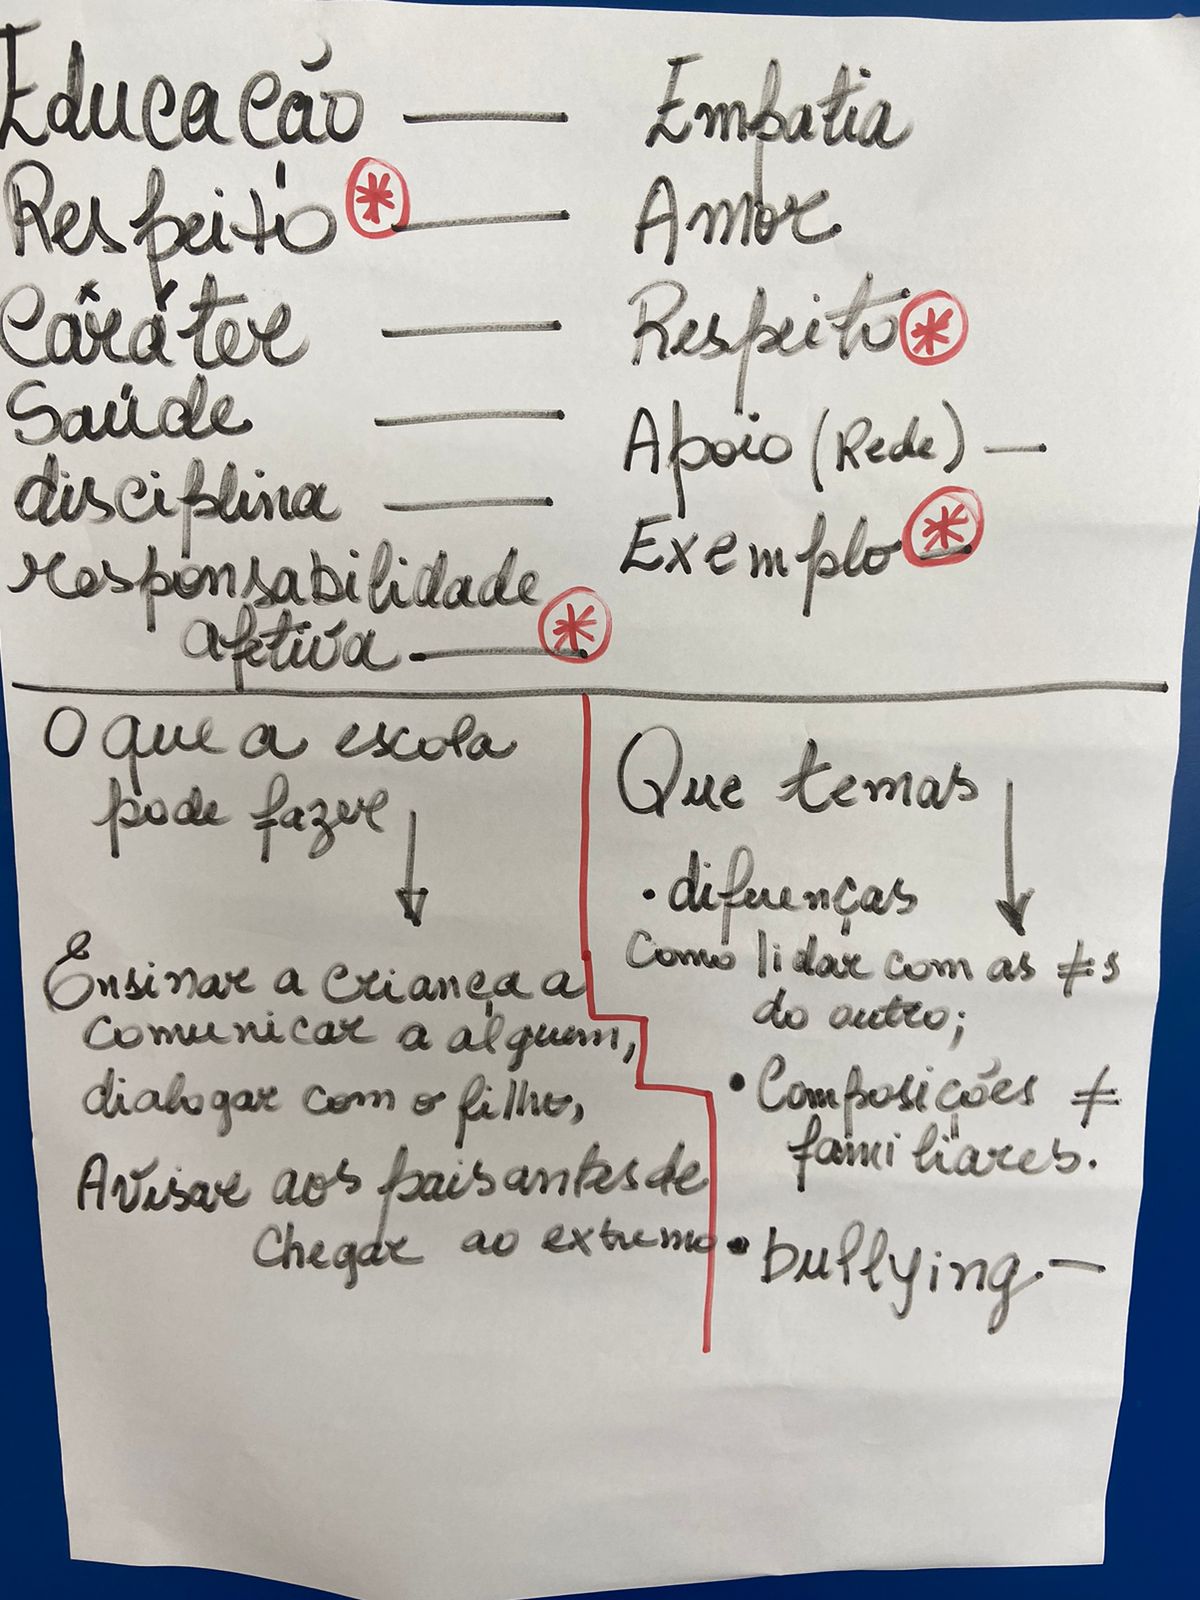 Educação —— Empatia
Respeito * —— Amor
Caráter —— Respeito *
Saúde —— Apoio (Rede) —
disciplina —— Exemplo *
responsabilidade
afetiva —— *
O que a escola
pode fazer ↓
Ensinar a criança a
comunicar a alguem,
dialogar com o filho,
Avisar aos pais antes de
chegar ao extremo
Que temas ↓
• diferenças
como lidar com as ≠s
do outro;
• Composições ≠
familiares.
• bullying. —